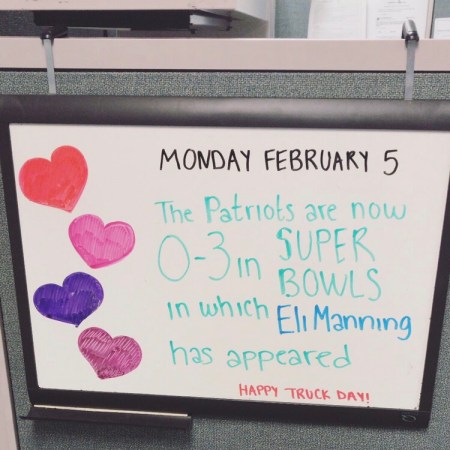 MONDAY FEBRUARY 5
The Patriots are now
0-3 in SUPER
BOWLS
in which Eli Manning
has appeared
HAPPY TRUCK DAY!